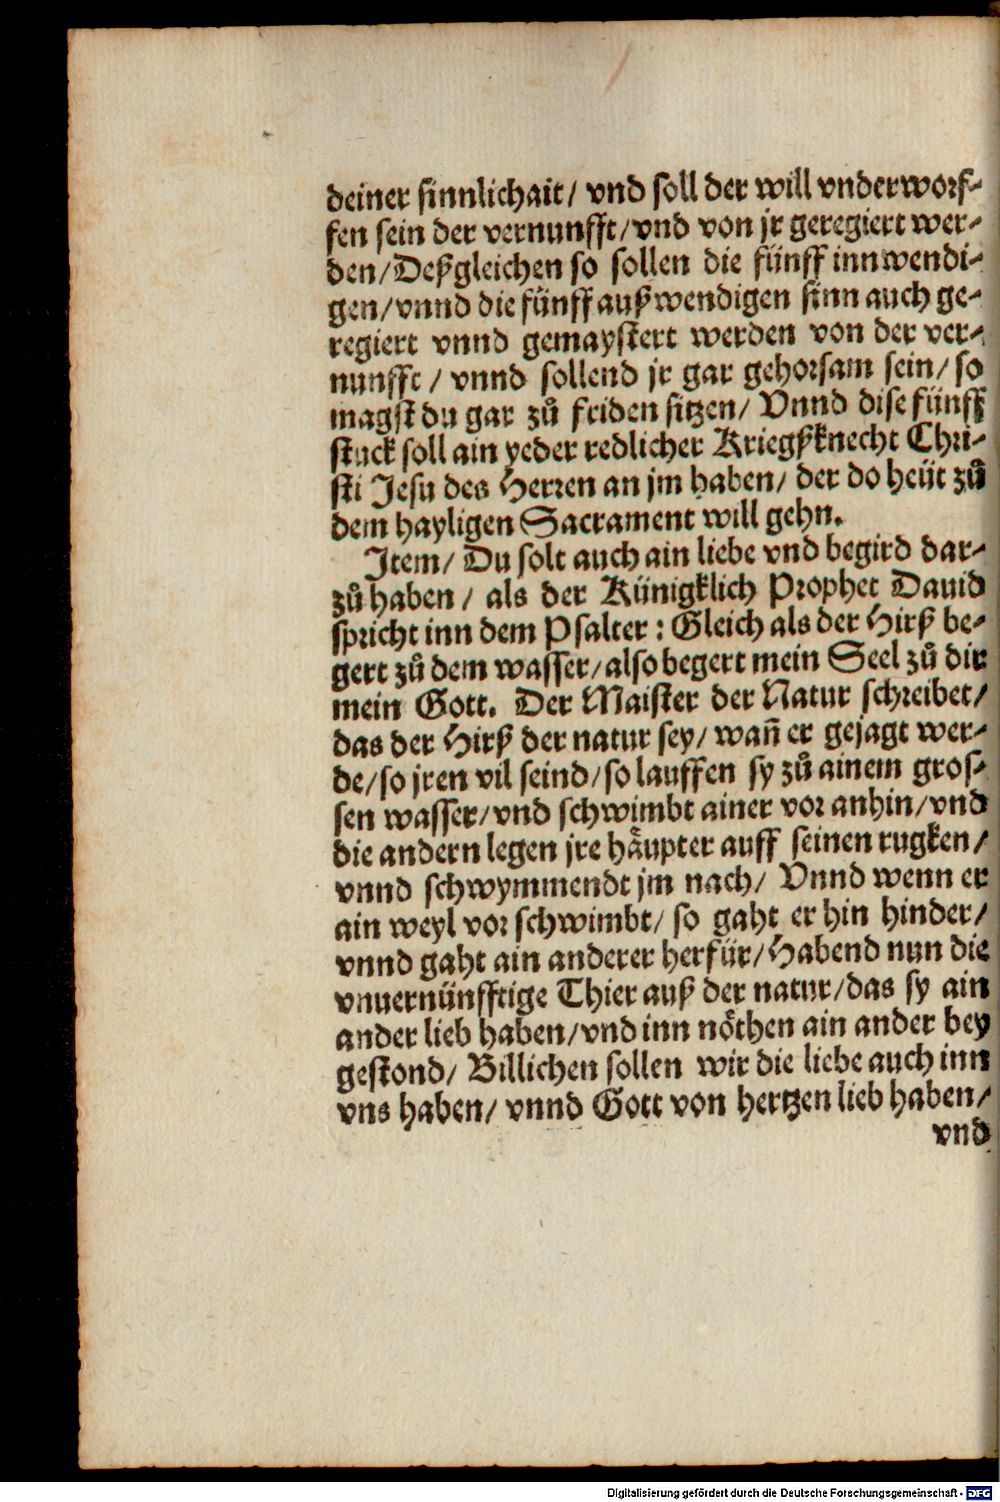 deiner sinnlichait/ vnd soll der will vnderworf-
fen sein der vernunfft/vnd von jr geregiert wer-
den/Deßgleichen so sollen die fünff innwendi-
gen/vnnd die fünff außwendigen sinn auch ge-
regiert vnnd gemaystert werden von der ver-
nunfft / vnnd sollend jr gar gehorsam sein/ so
magst du gar zů friden sitzen/ Vnnd dise fünff
stuck soll ain yeder redlicher Kriegßknecht Chri-
sti Jesu des Herren an jm haben/ der do heüt zů
dem hayligen Sacrament will gehn.
Item/ Du solt auch ain liebe vnd begird dar-
zů haben / als der Künigklich Prophet Dauid
spricht inn dem Psalter : Gleich als der Hirß be-
gert zů dem wasser/also begert mein Seel zů dir
mein Gott. Der Maister der Natur schreibet/
das der Hirß der natur sey/ wañ er gejagt wer-
de/so jren vil seind/so lauffen sy zů ainem gros-
sen wasser/vnd schwimbt ainer vor anhin/vnd
die andern legen jre häupter auff seinen rugken/
vnnd schwymmendt jm nach/ Vnnd wenn er
ain weyl vor schwimbt/ so gaht er hin hinder/
vnnd gaht ain anderer herfür/Habend nun die
vnuernünfftige Thier auß der natur/das sy ain
ander lieb haben/vnd inn nöthen ain ander bey
gestond/ Billichen sollen wir die liebe auch inn
vns haben/ vnnd Gott von hertzen lieb haben/
vnd
Digitalisierung gefördert durch die Deutsche Forschungsgemeinschaft - DFG